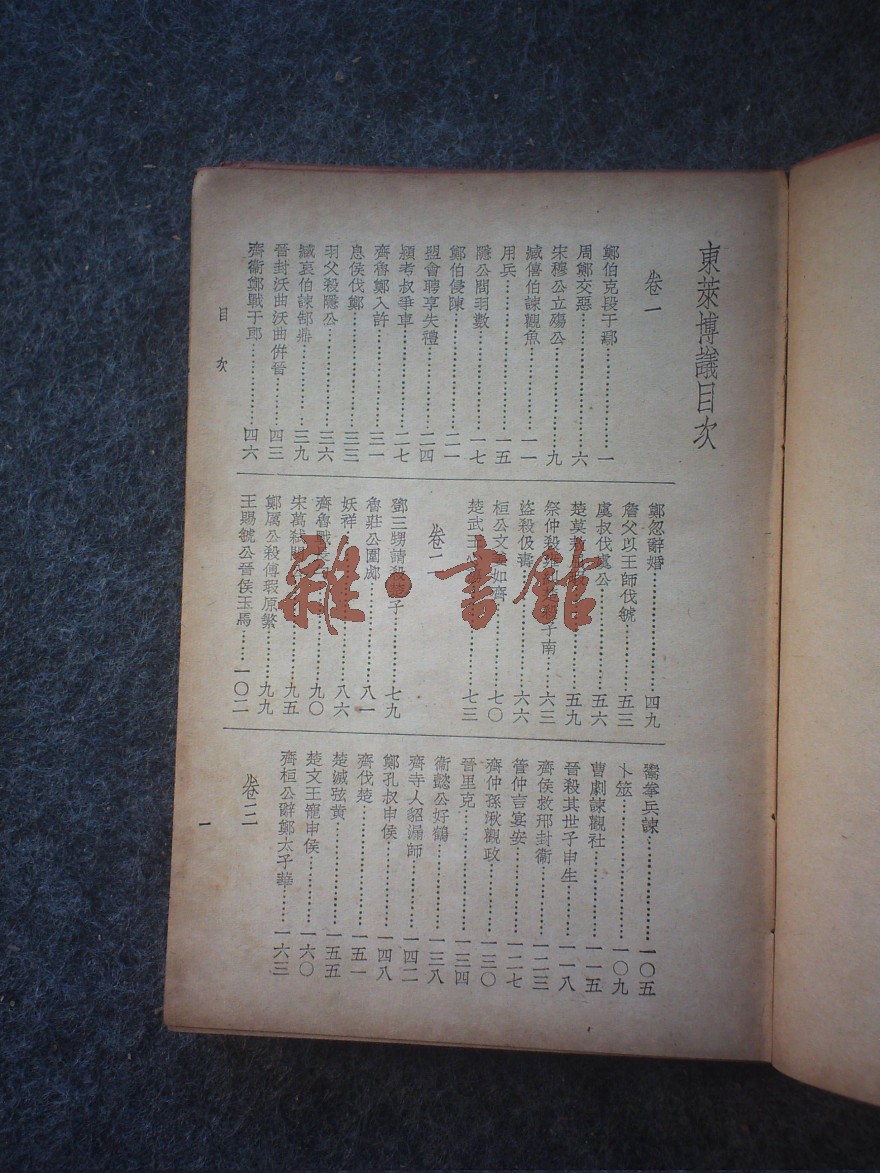 東萊博議目次
卷一
鄭伯克段于鄢……一
周鄭交惡……六
宋穆公立殤公……九
臧僖伯諫觀魚……一一
用兵……一五
隱公問羽數……一七
鄭伯侵陳……二一
盟會聘享失禮……二四
潁考叔爭車……二七
齊魯鄭入許……三一
息侯伐鄭……三三
羽父殺隱公……三六
臧哀伯諫郜鼎……三九
晉封沃曲沃曲併晉……四三
齊衞鄭戰于郎……四六
鄭忽辭婚……四九
詹父以王師伐虢……五三
虞叔伐虞公……五六
楚莫……五九
祭仲殺雍……子南……六三
盜殺伋壽……六六
桓公文……如齊……七〇
楚武王……七三
卷二
鄧三甥請殺楚子……七九
魯莊公圍郕……八一
妖祥……八六
齊魯戰……九〇
宋萬弒閔……九五
鄭厲公殺傅瑕原繁……九九
王賜虢公晉侯玉馬……一〇二
鬻拳兵諫……一〇五
卜筮……一〇九
曹劌諫觀社……一一五
晉殺其世子申生……一一八
齊侯救邢封衞……一二三
管仲言宴安……一二七
齊仲孫湫觀政……一三〇
晉里克……一三四
衞懿公好鶴……一三八
齊寺人貂漏師……一四二
鄭孔叔申侯……一四八
齊伐楚……一五一
楚滅弦黃……一五五
楚文王寵申侯……一六〇
齊桓公辭鄭太子華……一六三
卷三
目次
一
雜·書館